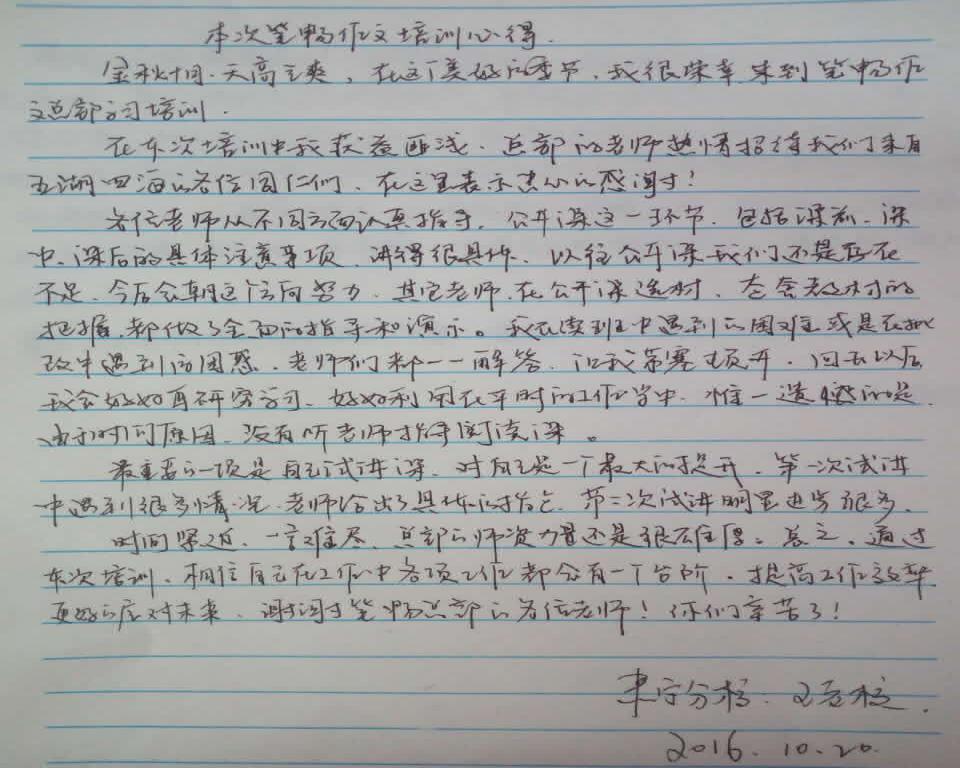 本次笔畅作文培训心得.
金秋时间.天高气爽,在这个美好的季节,我很荣幸来到笔畅作
文总部学习培训.
在本次培训中我获益匪浅.总部的老师热情招待我们来自
五湖四海的各位同仁们,在这里表示衷心的感谢!
各位老师从不同方面认真指导,公开课这一环节,包括课前、课
中、课后的具体注意事项,讲得很具体,以往公开课我们还是存在
不足,今后会朝这个方向努力,其它老师,在公开课选材、教材的
把握,都做了全面的指导和演示。我在读到中遇到的困难或是在批
改中遇到的困惑,老师们都一一解答,让我茅塞顿开,回去以后
我会好好再研究学习,好好利用在平时的工作当中,惟一遗憾的是
由于时间原因,没有听老师指导阅读课。
最重要的一项是自己试讲课,对自己是一个最大的提升,第一次试讲
中遇到很多情况,老师给出了具体的指点,第二次试讲明显进步很多.
时间紧迫,一言难尽,总部的师资力量还是很雄厚。总之,通过
本次培训,相信自己在工作中各项工作都会有一个台阶,提高工作效率
更好的应对未来,谢谢笔畅总部的各位老师!你们辛苦了!
分校:
2016.10.20.